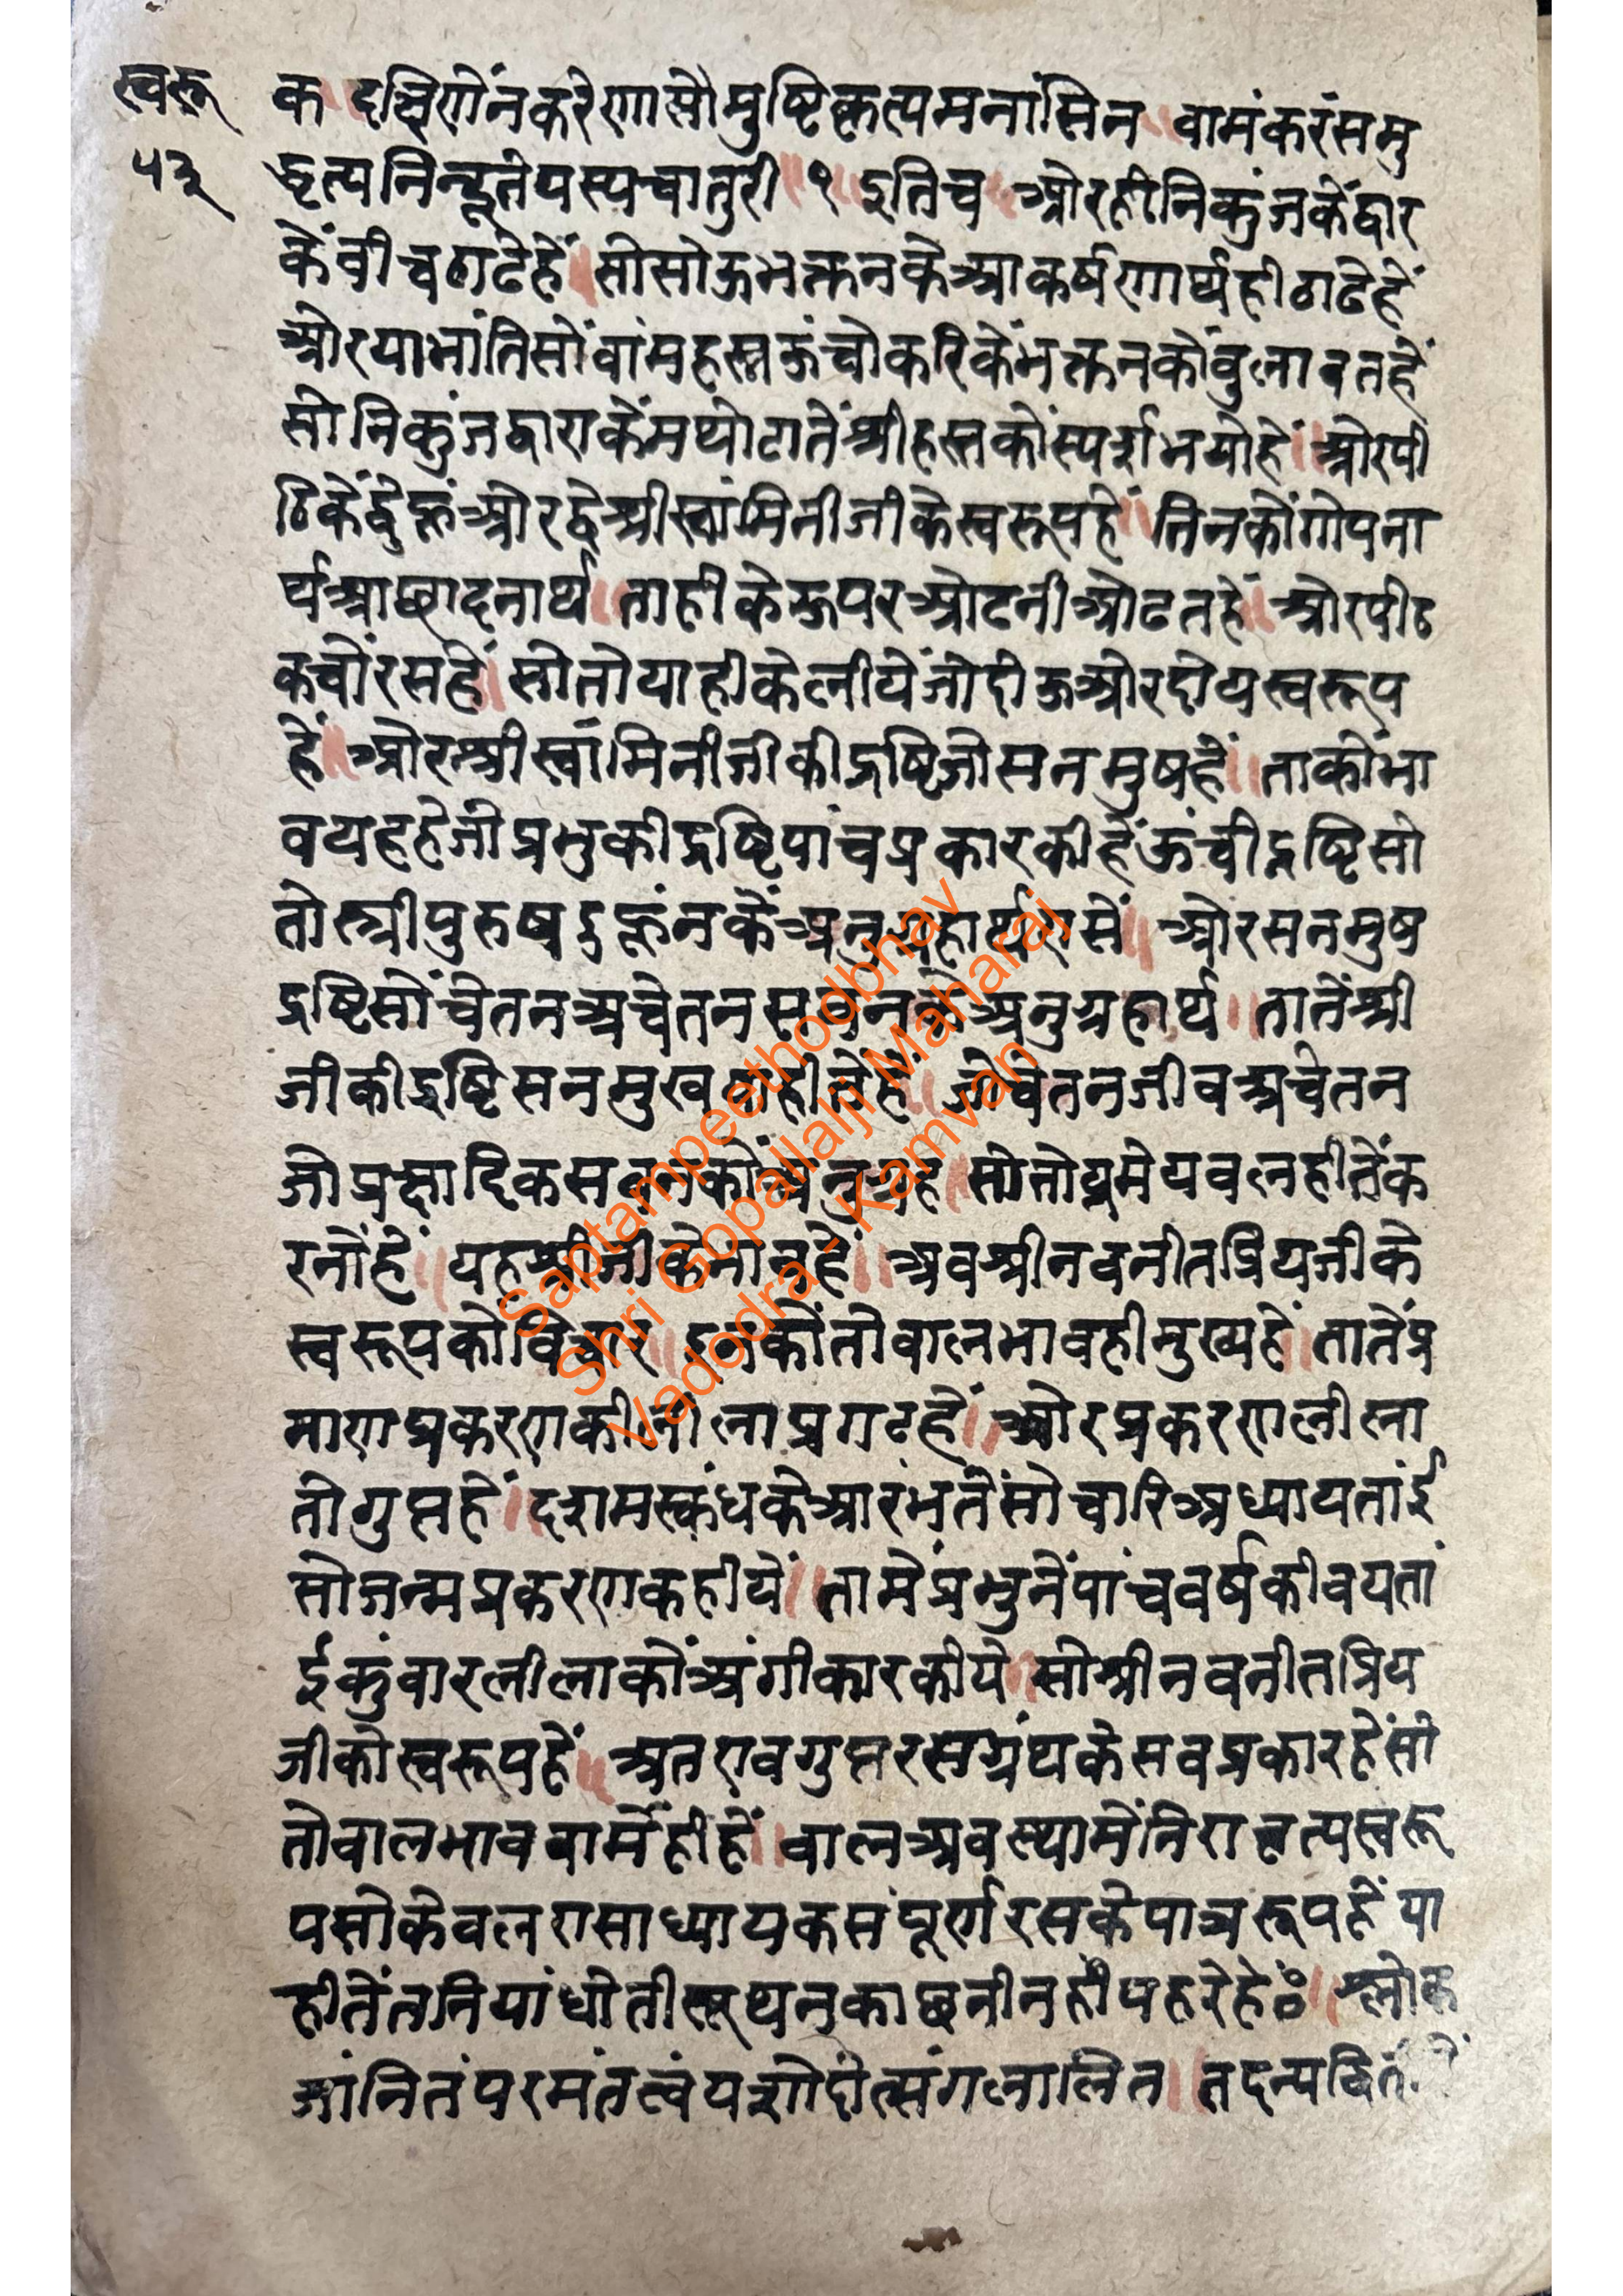 स्वरू
५३
क ॥ दक्षिणेनकरेणासौमुष्टिकृत्यमनांसिन ॥ वामंकरंसमु
द्धृत्यनिन्हूतेयस्यचातुरी ॥ १ ॥ इतिच ॥ ओरहीनिकुंजकेंद्वार
केंवीचठाढेहें ॥ सोसोऊभक्तनकेआकर्षणार्थहीठाढेहें
ओरयाभांतिसोंवांमहस्तऊंचोकरिकेंभक्तनकोंवुलावतहें
सोनिकुंजद्वाराकेंमथोटातेंश्रीहस्तकोंस्पर्शभयोहे ॥ ओरपी
ठिकेंद्वेहूंओरद्वेश्रीस्वांमिनीजीकेस्वरूपहें ॥ तिनकोंगोपना
र्थआछादनार्थ ॥ ताहीकेऊपरओढनीओढतहें ॥ ओरपीठ
कचोंरसहें ॥ सोतोयाहीकेलीयेंजोदोऊओरदोयस्वरूप
हें ॥ ओरश्रीस्वांमिनीजीकीद्रष्टिजोसनमुषहें ॥ ताकोंभा
वयहहेजोप्रभुकीद्रष्टिपांचप्रकारकीहेंऊंचीद्रष्टिसो
तोस्त्रीपुरुषदुहूंनकेंअनुग्रहार्थरासें ॥ ओरसनमुष
द्रष्टिसोंचेतनअचेतनसवनकेअनुग्रहार्थ ॥ तातेंश्री
जीकीद्रष्टिसनमुखताहीतेंहें ॥ जोचेतनजीवअचेतन
जोप्रह्मादिकसवनकोंअनुग्रह ॥ सोतोप्रमेयवलहीतेंक
रनोंहें ॥ यहश्रीजीकेभावहें ॥ अवश्रीनवनीतप्रियजीके
स्वरूपकोविचार ॥ इनकोंतोवालभावहीमुख्यहें ॥ तातेंप्र
माणप्रकरणकीलीलाप्रगटहें ॥ ओरप्रकरणलीला
तोगुप्तहें ॥ दशमस्कंधकेआरंभतेंसोचारिअध्यायतांई
सोजन्मप्रकरणकहीयें ॥ तामेंप्रभुनेंपांचवर्षकीवयतां
ईकुंवारलीलाकोंअंगीकारकीये ॥ सोश्रीनवनीतप्रिय
जीकोस्वरूपहें ॥ अतएवगुप्तरसग्रंथकेसवप्रकारहेंसो
तोवालभाववामेंहीहें ॥ वालअवस्थामेंनिरावृत्यस्वरू
पसोकेवलरासाध्यायकसंपूर्णरसकेपात्ररूपहें या
हीतेंतनियांधोतीसूथनकाछनीनहींपहरेहें ॥ श्लोक
जांनितंपरमंतत्वंयशोदोत्संगलालित ॥ तदन्यदिति